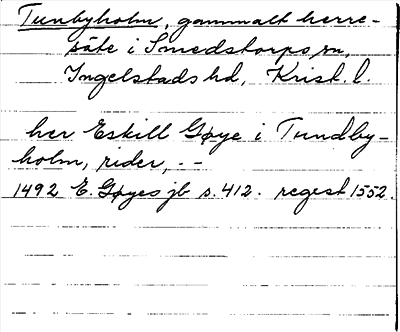 Tunbyholm, gammalt herre-
säte i Smedstorps sn,
Ingelstads hd, Krist. l.
her Eskill Gøye i Tundby-
holm, rider, . -
1492 E. Gøyes jb s. 412. regest 1552.